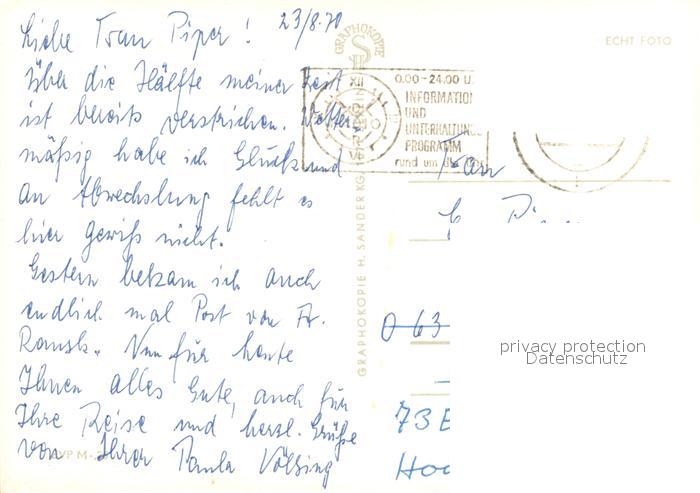 Liebe Frau Piper! 23/8.70
Über die Hälfte meiner Zeit
ist bereits verstrichen. Wetter
mäßig habe ich Glück und
an Abwechslung fehlt es
hier gewiß nicht.
Gestern bekam ich auch
endlich mal Post von Fr.
Nun für heute
Ihnen alles Gute, auch für
Ihre Reise und herzl. Grüße
von Ihrer Paula Völsing
GRAPHOKOPIE
ECHT FOTO
XII
0.00-24.00 U
INFORMATIO
UND
UNTERHALTUNG
PROGRAMM
rund um die
Frau
GRAPHOKOPIE H. SANDER KG
O 63
73 E
Hoc
privacy protection
Datenschutz
VP M-